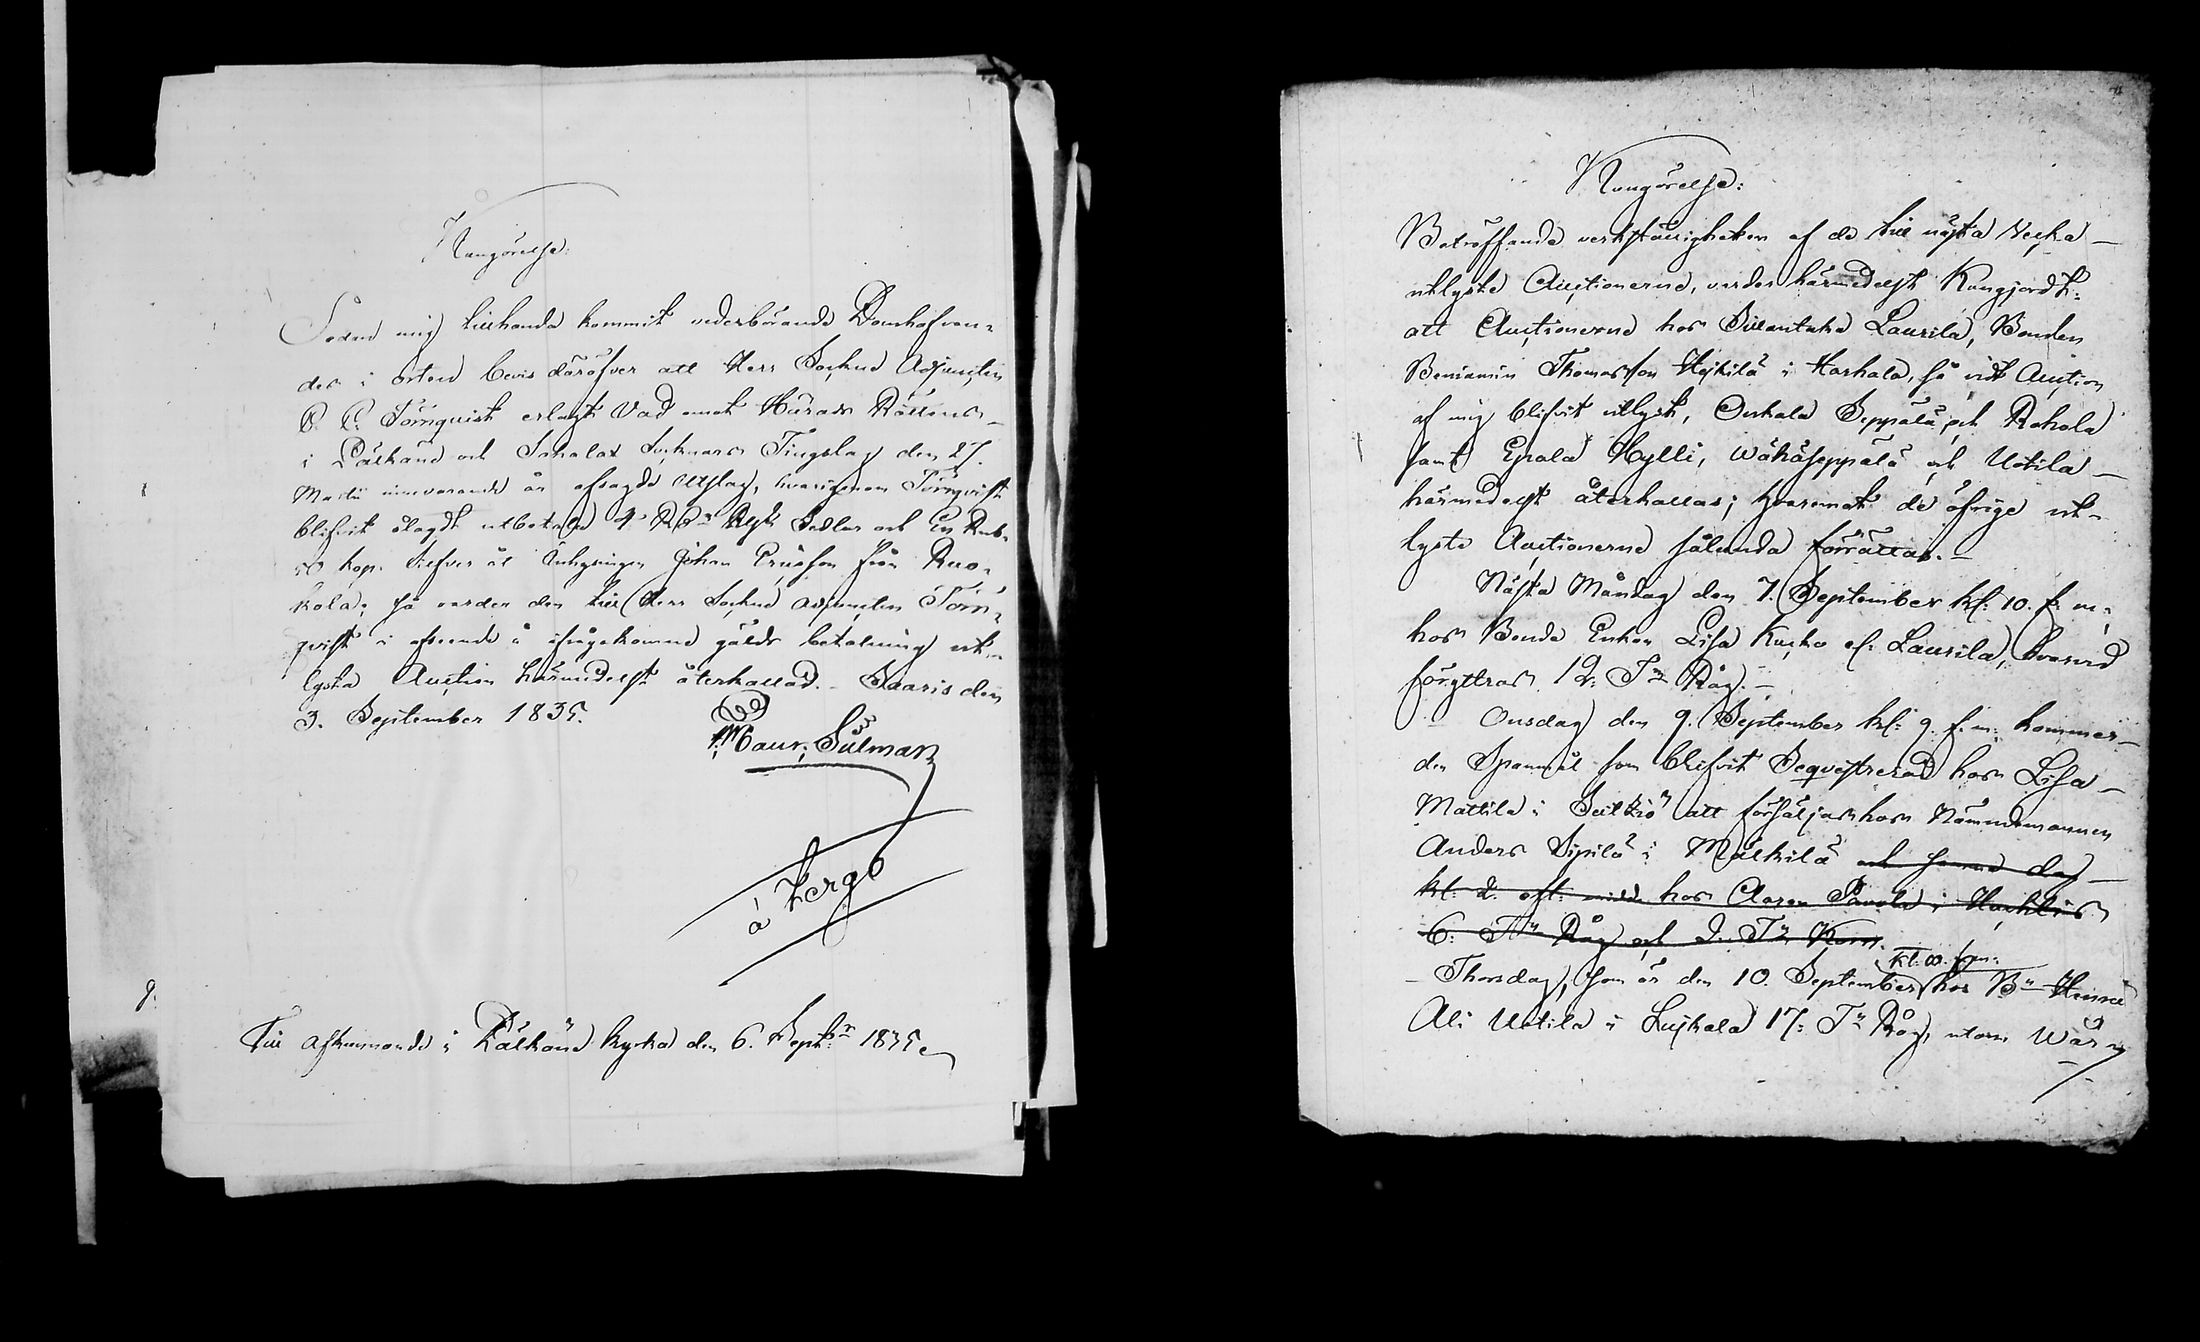 Kungörelse:
Sedan mig tillhanda kommit vederbörande Domhafvan¬
des i orten bevis däröfver att Herr Sockne Adjuncten
C. Törnqvist erlagt Vad emot Härads Rättens
i Pälkäne och Sahalax Socknars Tingslag den 27.
Martii innevarande år afsagde Utslag, hvarigenom Törnqvist
blifvit ålagdt utbetala 4 R:o Sedlar och En Rub.
50 kop. Silfver åt Inhysingen Johan Ericsson från Ruo¬
kola; så varder den till Herr Sockne Adjuncten Törn¬
qvist i afseende å ifrågakomne gälds betalning ut¬
lyste Auction härmedelst återkallad. Saaris den
3. September 1835.
Maur: Silman
à Tergo
Till afkunnande i Pälkäne kyrka den 6. Septbr 1835
Kungörelse:
Beträffande verkställigheten af de till nästa Vecka
utlyste Auctionerne, varder härmedelst Kungjordt:
att Auctionerne hos Sillantaka Laurila, Bonden
Beniamin Thomasson Heikilä i Harhala, så vidt Auction
af mig blifvit utlyst, Onkala Seppälä och Rohola
samt Epaala Hylli, Wähäseppälä och Uotila
härmedelst återkallas; hvaremot de öfrige ut¬
lyste Auctionerne sålunda förrättas.
Nästa Måndag den 7. September kl: 10. f. m.
hos Bonde Enkan Lisa Kucko el. Laurila, hvarvid
föryttras 12. Tr Råg.
Onsdag den 9. September kl: 9. f. m. kommer
den Spannmål som blifvit Seqvestrerad hos Lisa
Mattila i Seitziö att försäljas hos Nämndemannen
Anders Sipilä i Mälkilä och samma dag
kl: 2. eft. midd. hos Claren Pavola i
6. Tr Råg och 2. Tr Korn.
kl: 10. f. m.
Thorsdag, som är den 10. September hos Bn
Ali Uotila i Luikala 17: Tr Råg, utom Wår